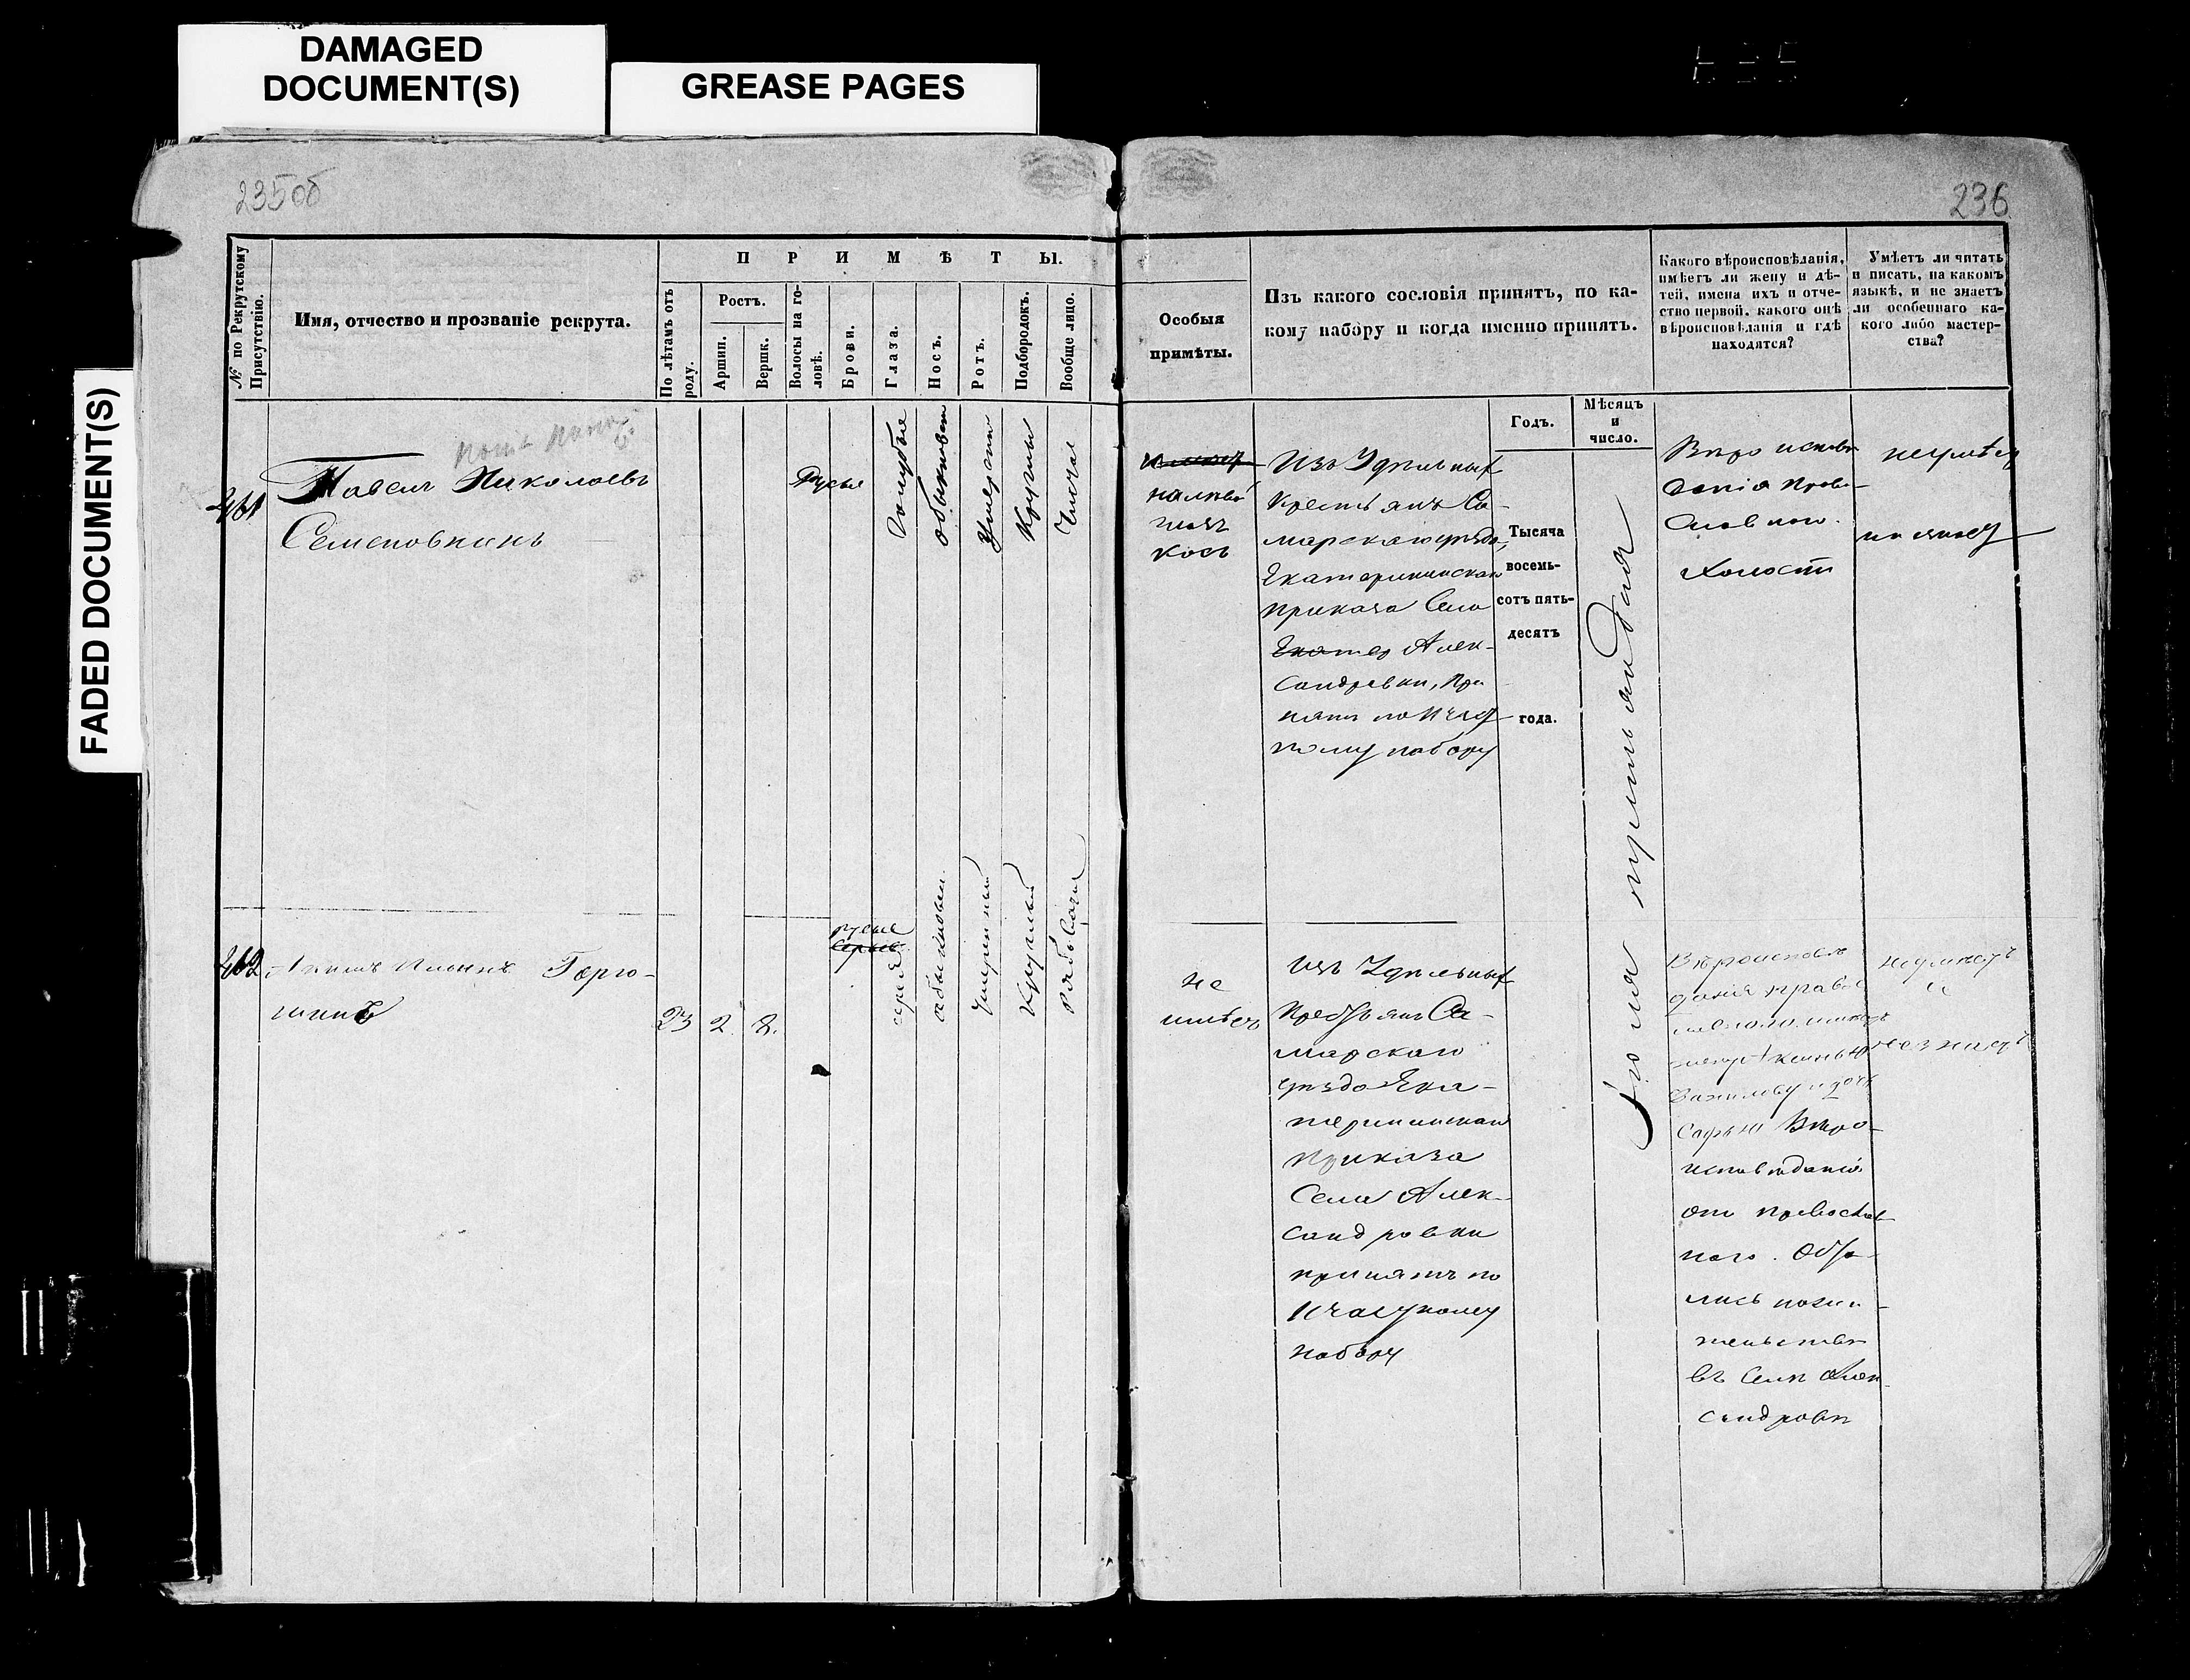 DAMAGED
DOCUMENT(S)
GREASE PAGES
FADED DOCUMENT(S)
235об
236
№ по Рекрутскому
Присутствію.
Имя, отчество и прозваніе рекрута.
ПРИМѢТЫ.
По лѣтамъ отъ
роду.
Ростъ.
Аршин.
Вершк.
Волосы на го-
ловѣ.
Брови.
Глаза.
Носъ.
Ротъ.
Подбородокъ.
Вообще лицо.
Особыя
примѣты.
Изъ какого сословія принятъ, по ка-
кому набору и когда именно принятъ.
Какого вѣроисповѣданія,
имѣетъ ли жену и дѣ-
тей, имена ихъ и отче-
ство первой, какого онѣ
вѣроисповѣданія и гдѣ
находятся?
Умѣетъ ли читать
и писать, на какомъ
языкѣ, и не знаетъ
ли особеннаго ка-
кого либо мастер-
ства?
Годъ.
Мѣсяцъ
и
число.
461
Павелъ Николаевъ
Семеновкинъ
Русые
Голубые
обыкновен
Умерены
Круглы
Чистое
на лѣво
глазъ
косъ
Изъ Удѣльных
Крестьянъ Са-
марскаго уѣзда,
Екатерининскаго
приказа Села
Екатер Алек-
сандровки, При
нятъ по
набору
Тысяча
восемь-
сотъ пять-
десятъ
года.
Іюля
дня
Вѣро исповѣ
данія Право-
славнаго.
Холостъ
неумѣет
462
Ильинъ Горю-
шинъ
23
2.
8.
русые
серые
серые
обыкновен.
Умеренный
Круглый
Рябоватое
не
имѣетъ
Изъ Удѣльных
Крестьянъ Са-
марскаго
уѣзда Ека-
терининскаго
Приказа
Села Алек-
сандровки
принятъ по
набору
Вѣроисповѣ
данія право
и дочь
Софью Вѣро-
исповѣданія
они православ
наго. Оста-
лись
въ Селѣ Алек
сандровкѣ
неумѣетъ
и
незнаетъ